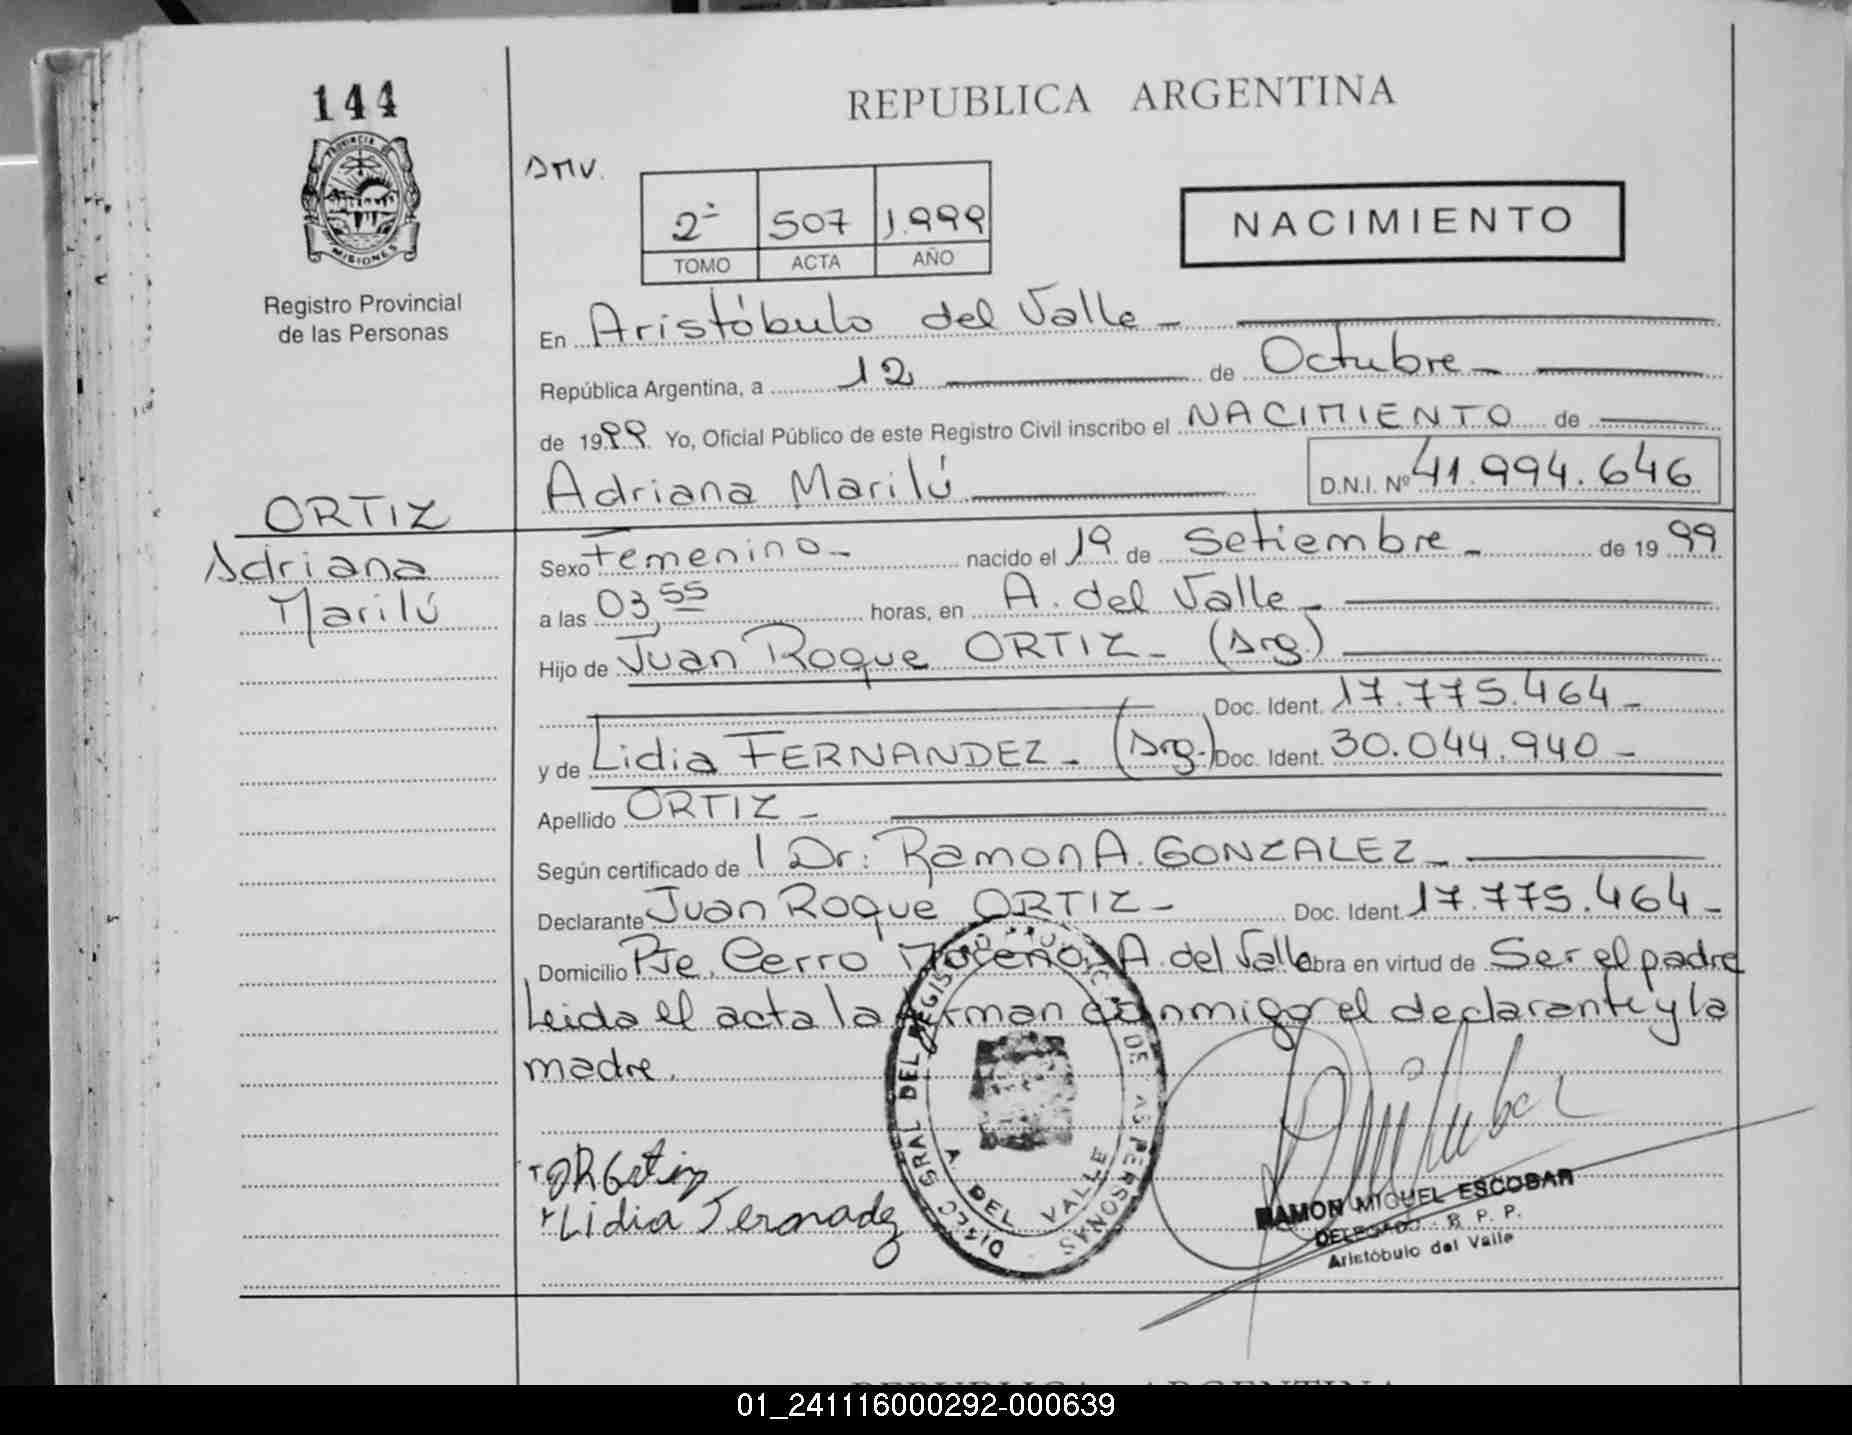 144
PROVINCIA DE
MISIONES
Registro Provincial
de las Personas
ORTIZ
Adriana
Marilú
REPUBLICA ARGENTINA
SMV.
2º 507 1.999
TOMO ACTA AÑO
NACIMIENTO
En Aristóbulo del Valle -
República Argentina, a 12 de Octubre -
de 1999. Yo, Oficial Público de este Registro Civil inscribo el NACIMIENTO de
Adriana Marilú D.N.I. Nº 41.994.646
Sexo Femenino - nacido el 19 de Setiembre - de 19 99
a las 03,55 horas, en A. del Valle -
Hijo de Juan Roque ORTIZ - (Arg.)
Doc. Ident. 17.775.464 -
y de Lidia FERNANDEZ - (Arg.) Doc. Ident. 30.044.940 -
Apellido ORTIZ -
Según certificado de l Dr: Ramon A. GONZALEZ -
Declarante Juan Roque ORTIZ - Doc. Ident. 17.775.464 -
Domicilio Pje. Cerro Moreno, A. del Valle obra en virtud de Ser el padre
Leida el acta la firman conmigo el declarante y la
madre.
Lidia Fernadez
REGISTRO PROVINC. DE LAS PERSONAS
A. DEL VALLE
RAMON MIGUEL ESCOBAR
DELEGADO - R. P. P.
Aristóbulo del Valle
REPUBLICA ARGENTINA
01_241116000292-000639